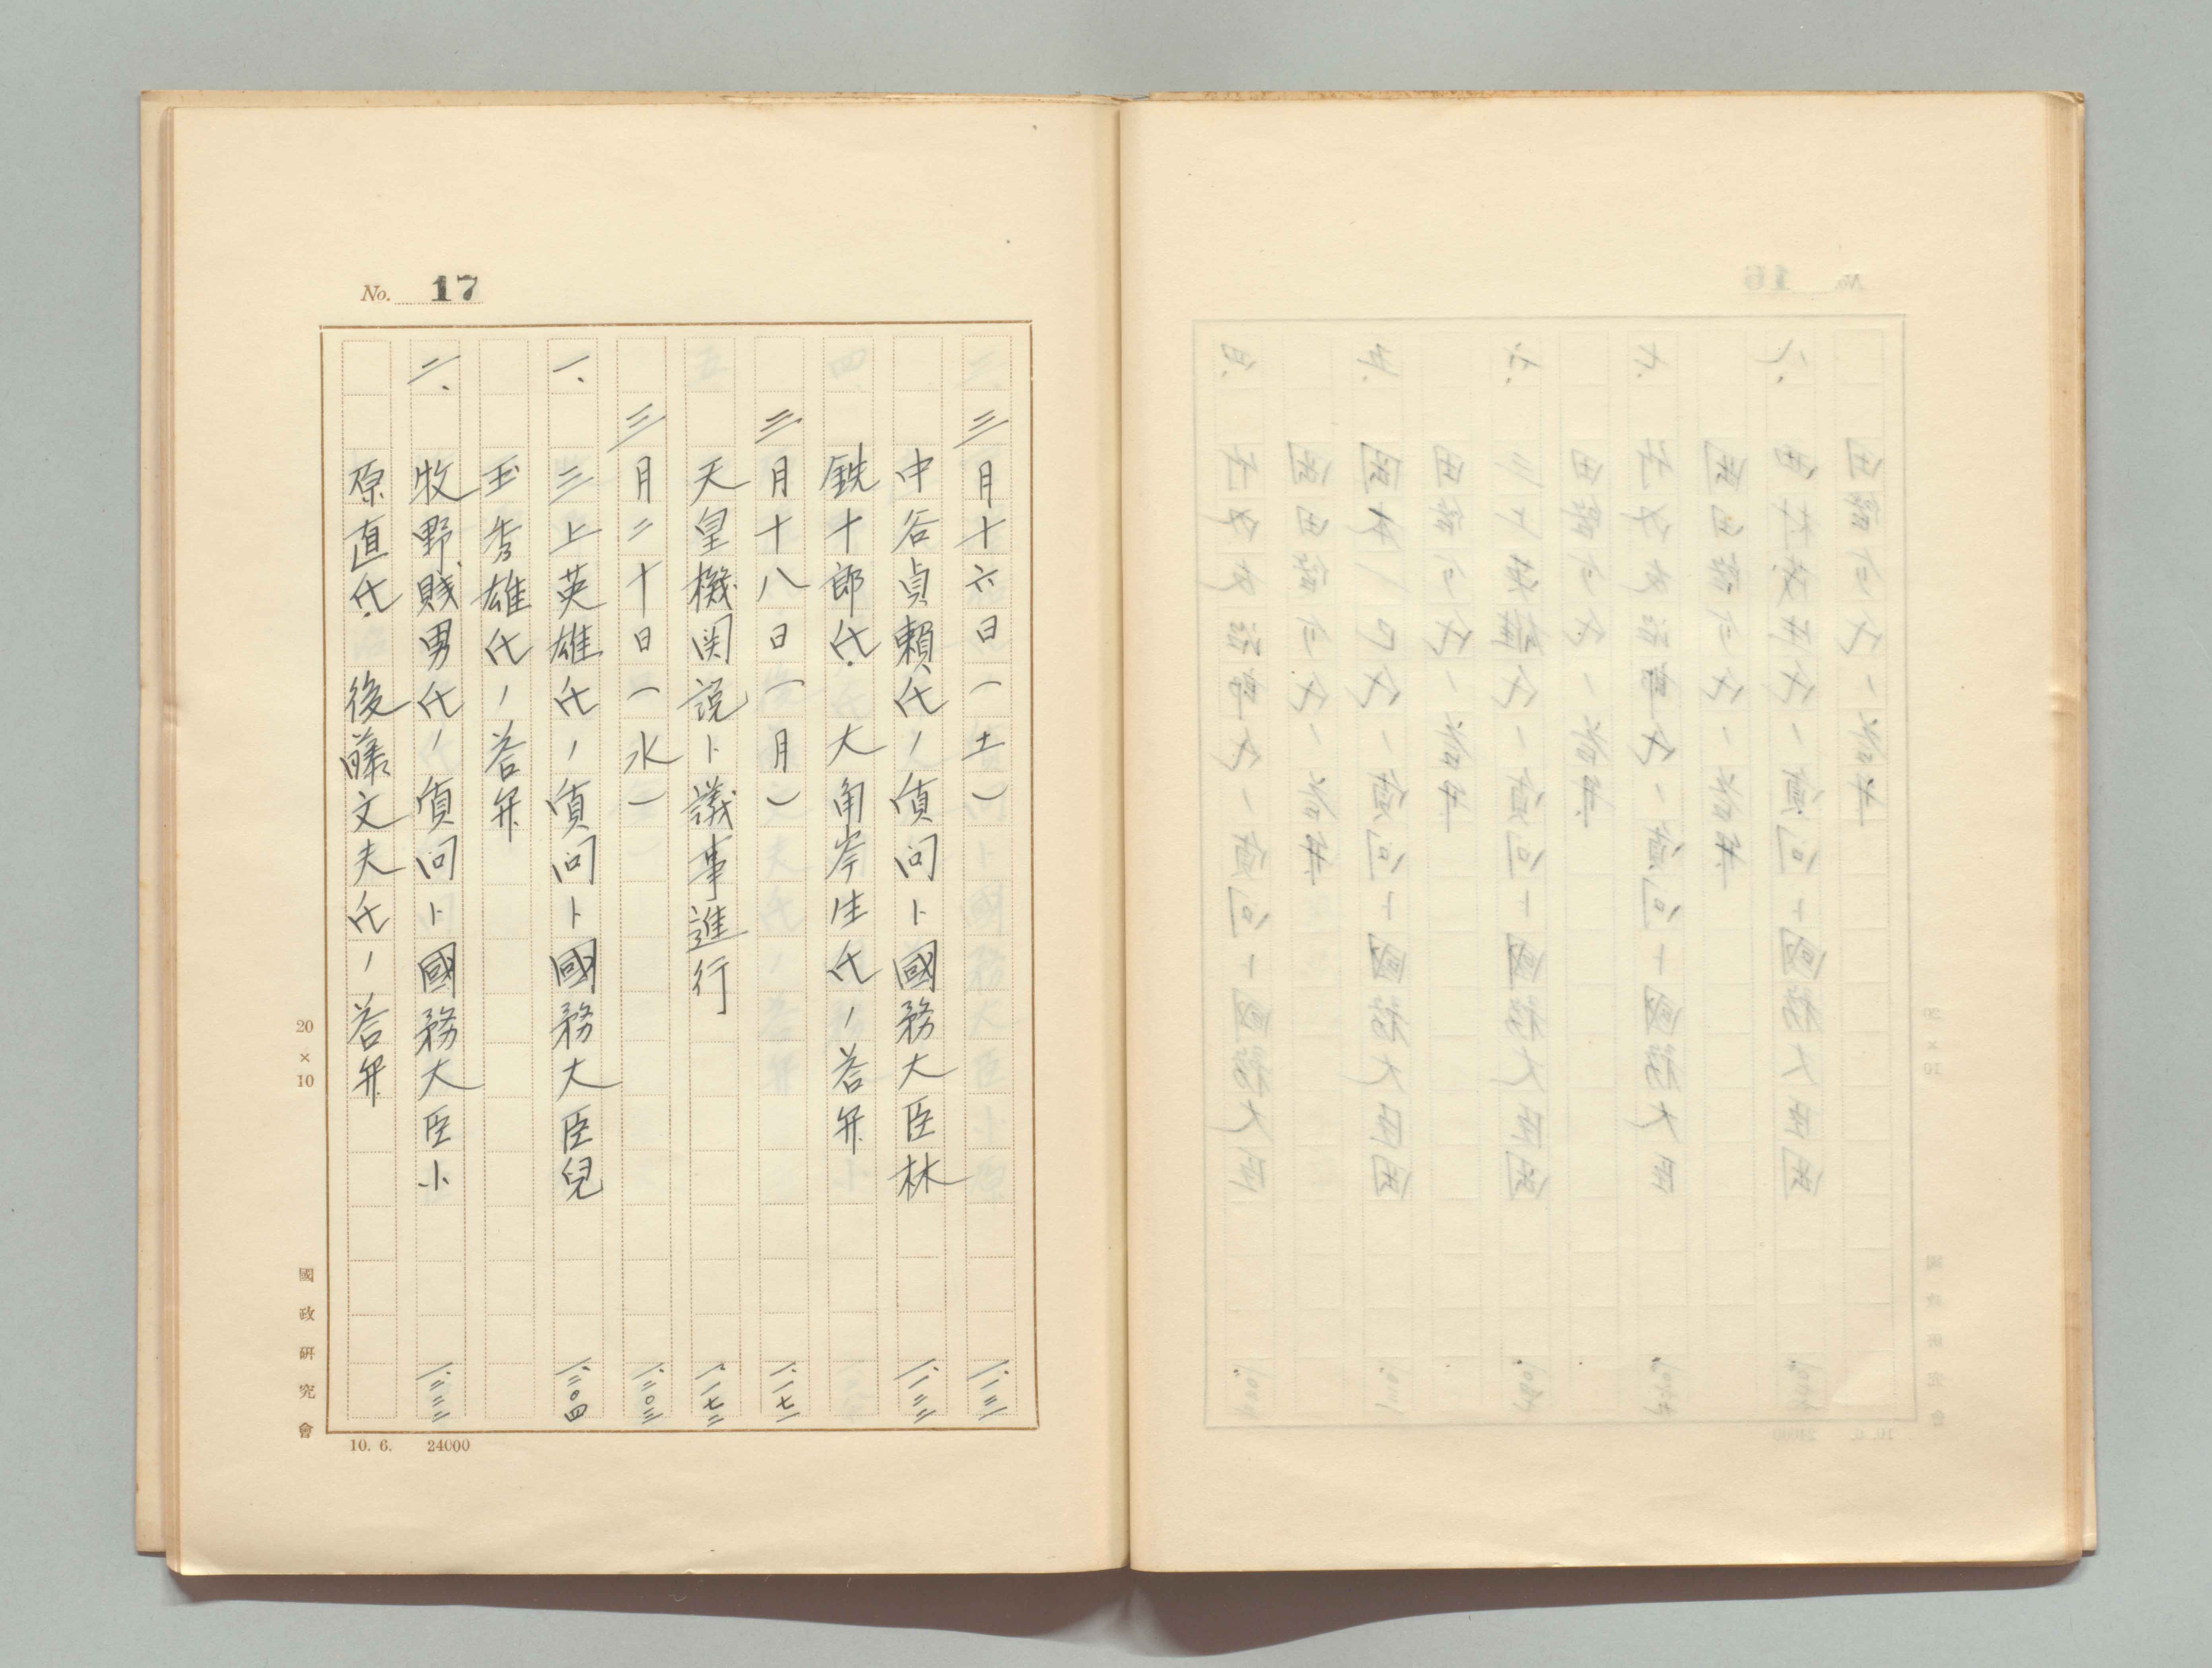 No. 17
三月十六日（土） 一、一三一
中谷貞頼氏ノ質問ト國務大臣林 一、一三二
銑十郎氏、大角岑生氏ノ答弁
三月十八日（月） 一、一七一
天皇機関説ト議事進行 一、一七二
三月二十日（水） 一、二〇三
一、三上英雄氏ノ質問ト國務大臣兒 一、二〇四
玉秀雄氏ノ答弁
二、牧野賤男氏ノ質問ト國務大臣小 一、二二二
原直氏、後藤文夫氏ノ答弁
20×10
國政研究會
10. 6. 24000